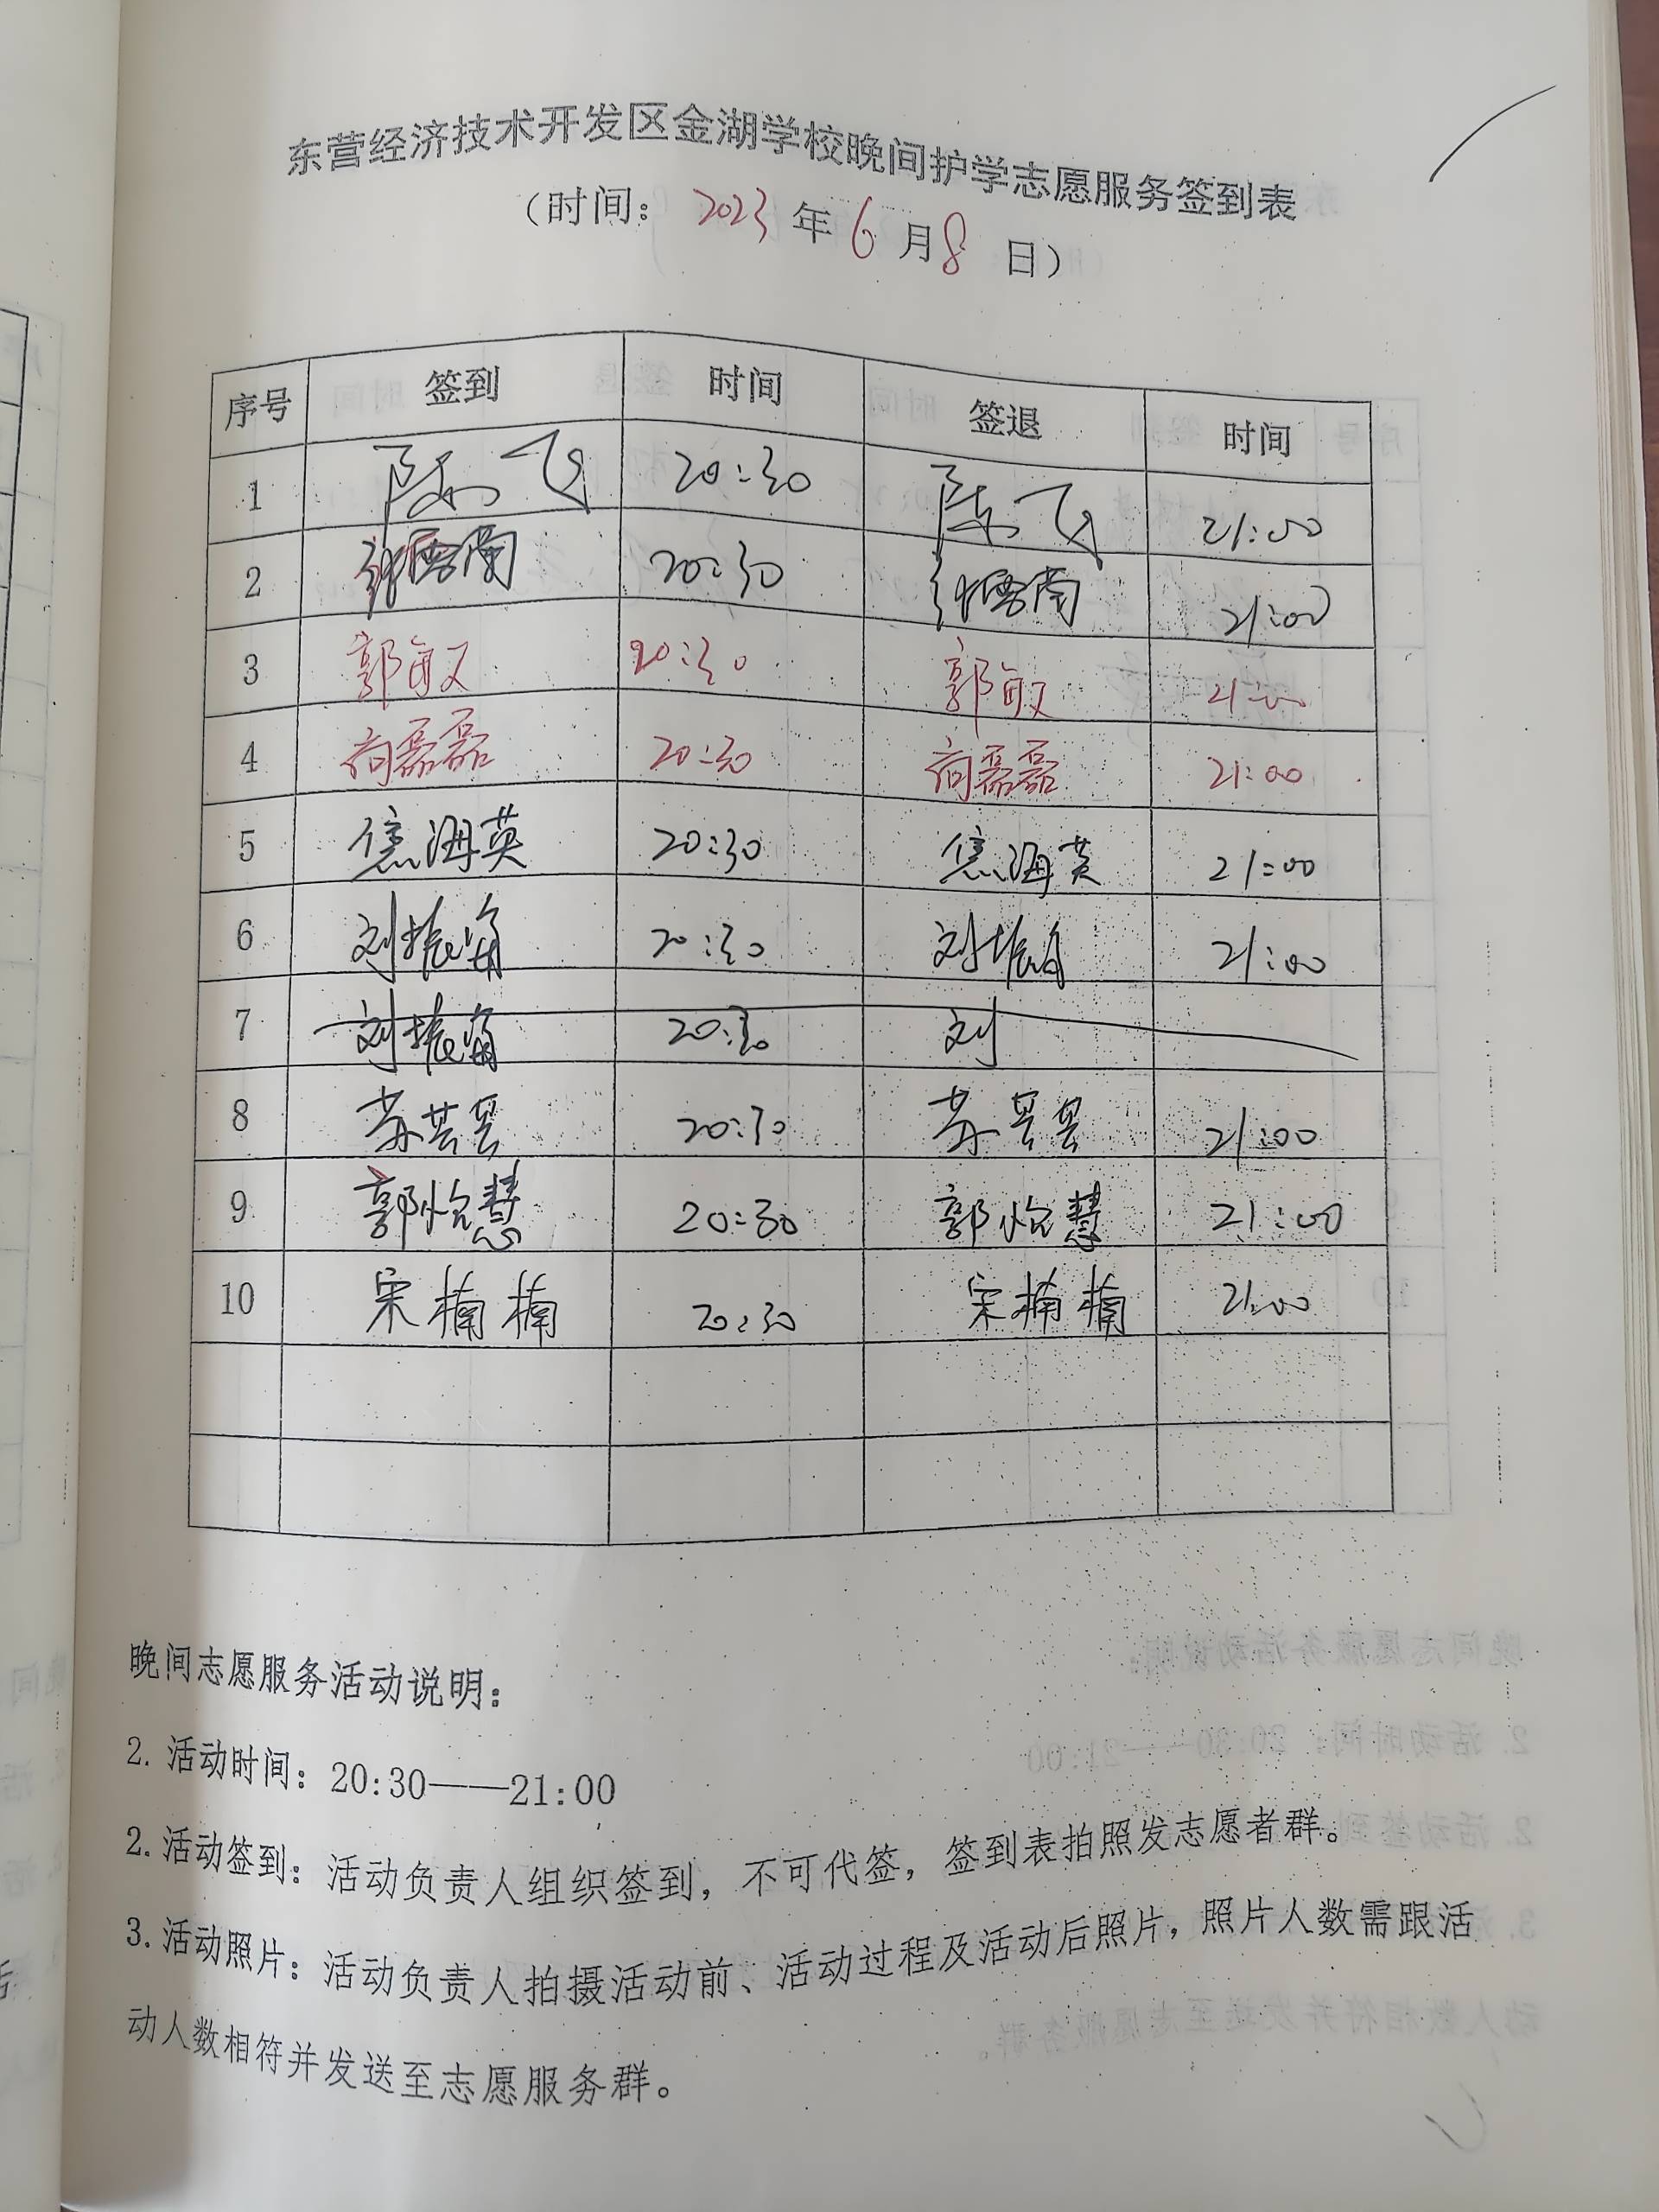 东营经济技术开发区金湖学校晚间护学志愿服务签到表
（时间： 2023 年 6 月 8 日）
序号 签到 时间 签退 时间
1 陈飞 20:30 陈飞 21:00
2 20:30 21:00
3 郭敏 20:30 郭敏 21:00
4 尚磊磊 20:30 尚磊磊 21:00
5 焦海英 20:30 焦海英 21:00
6 刘振海 20:30 刘振海 21:00
7 刘振海 20:30 刘
8 苏 20:30 苏 21:00
9 郭怡慧 20:30 郭怡慧 21:00
10 宋楠楠 20:30 宋楠楠 21:00
晚间志愿服务活动说明：
2. 活动时间：20:30——21:00
2. 活动签到：活动负责人组织签到，不可代签，签到表拍照发志愿者群。
3. 活动照片：活动负责人拍摄活动前、活动过程及活动后照片，照片人数需跟活
动人数相符并发送至志愿服务群。